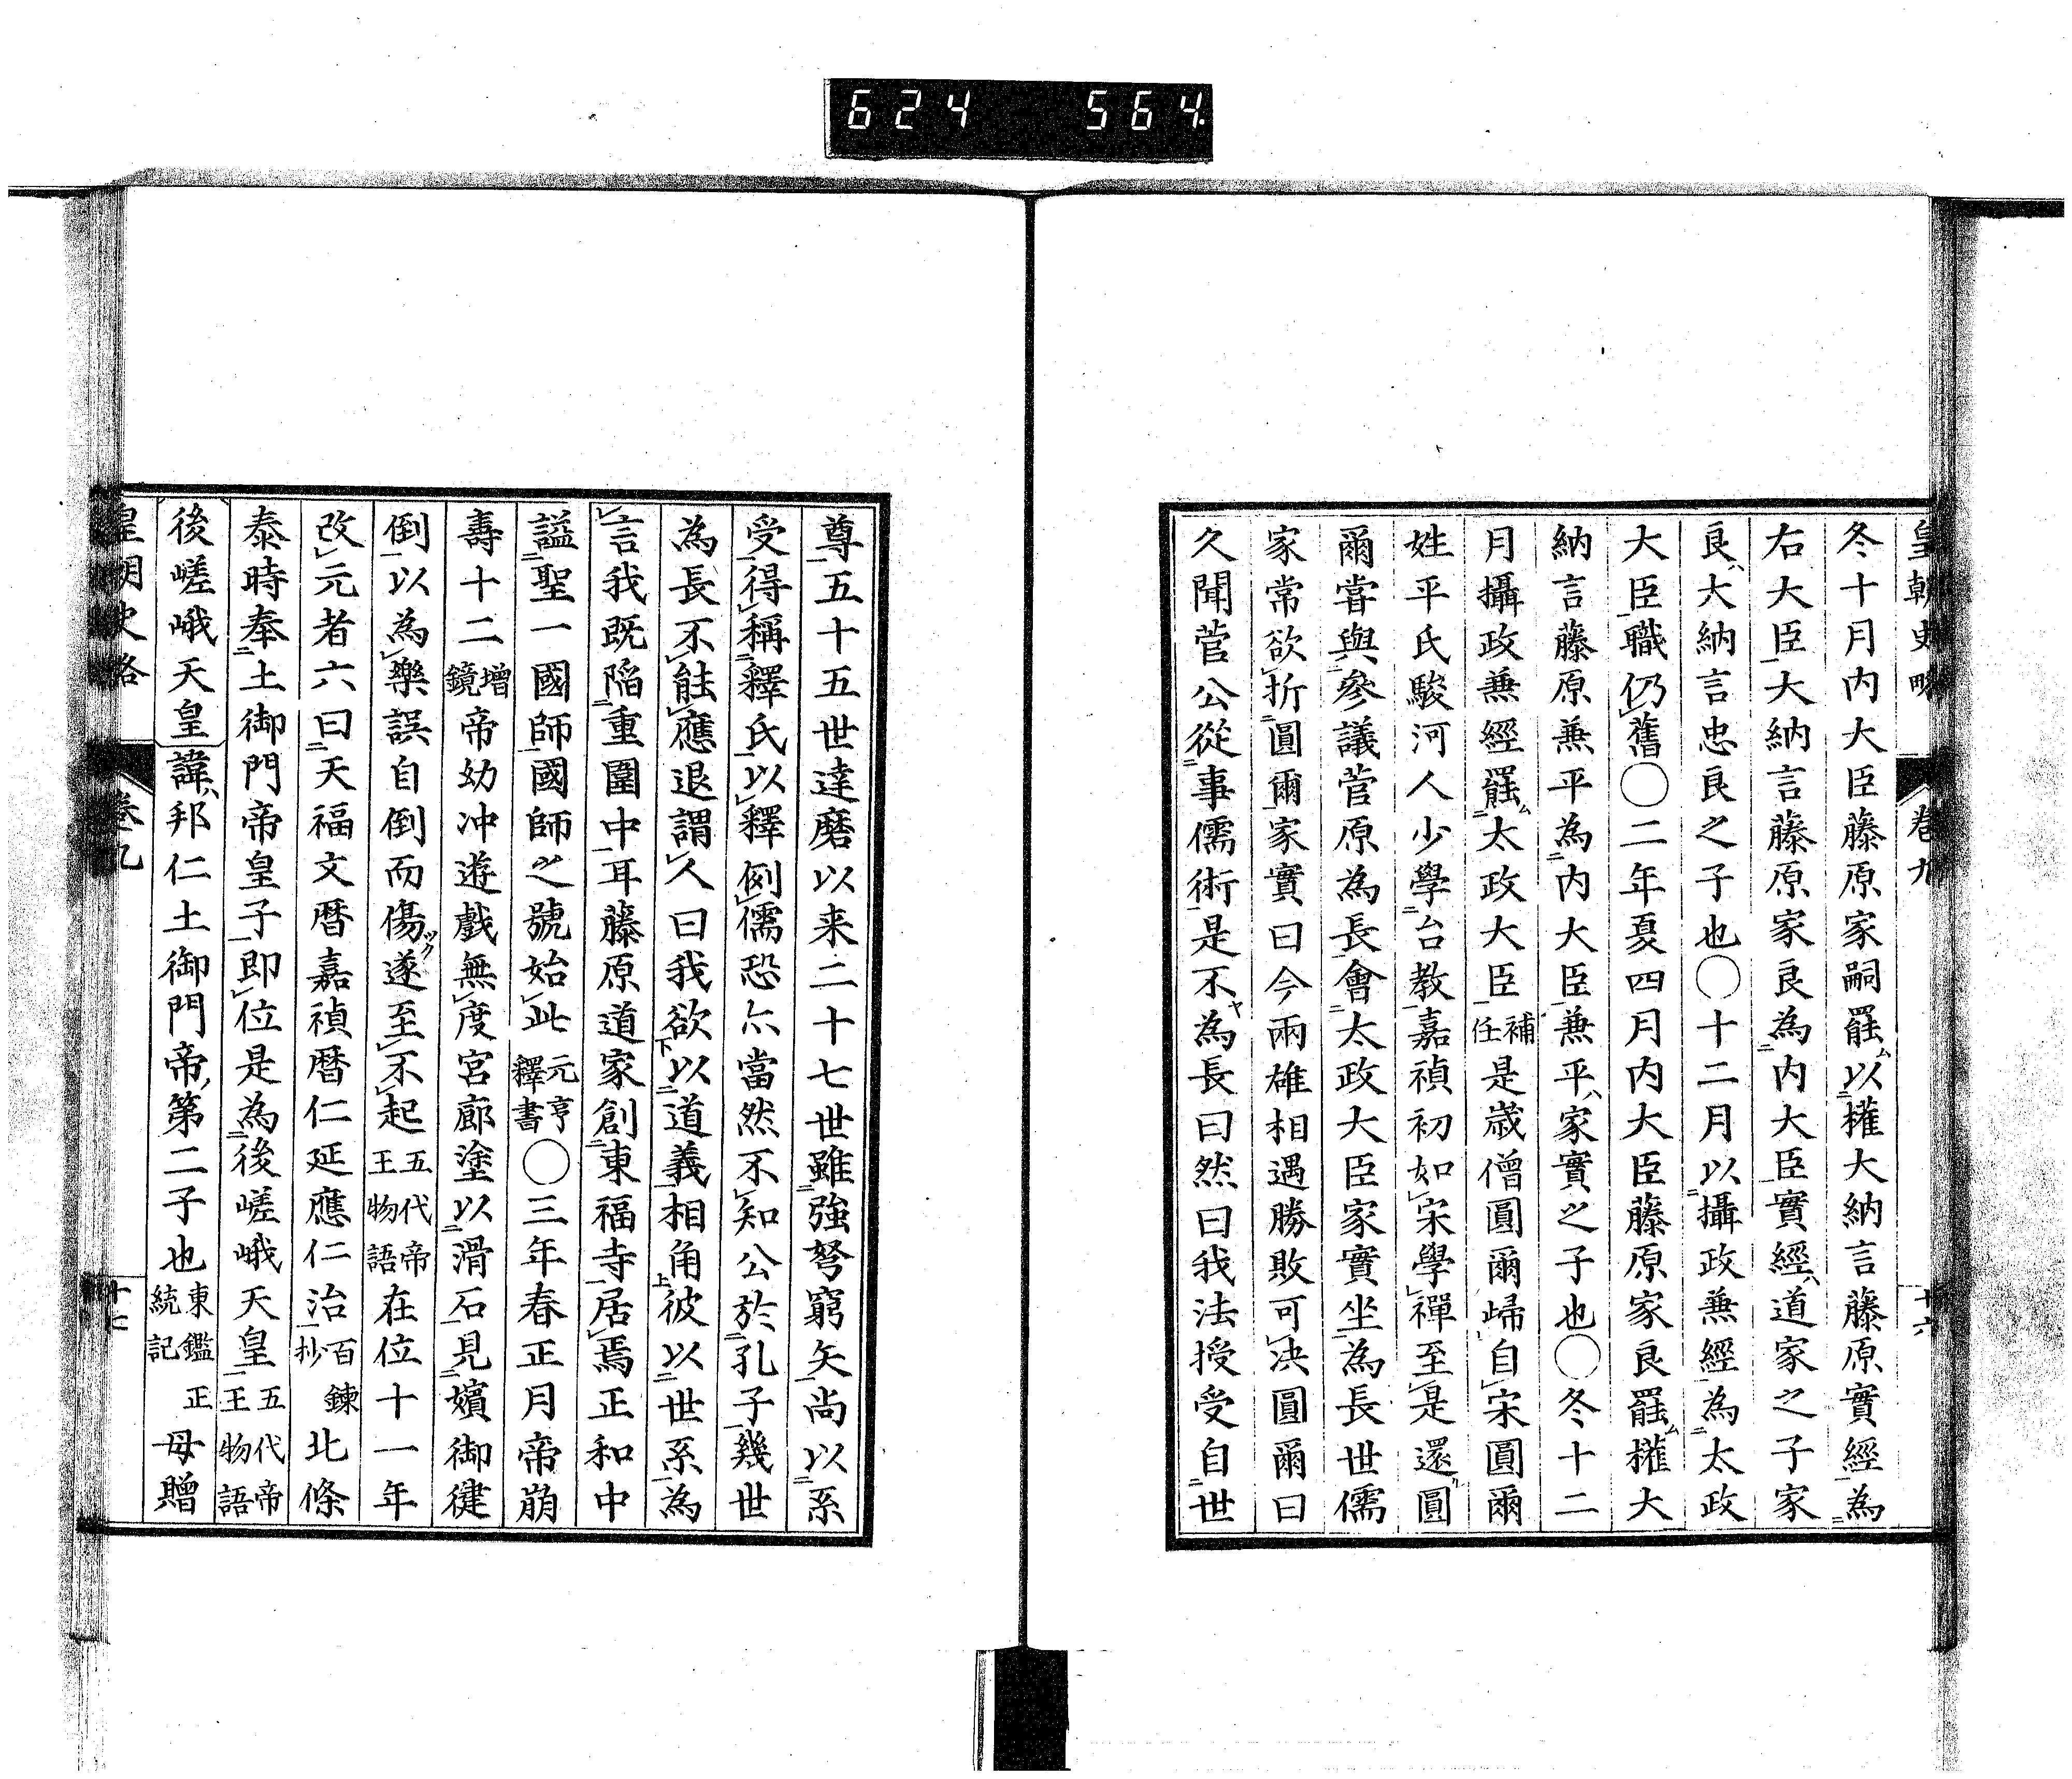 624 564
皇朝史略 卷九 十六
冬十月内大臣藤原家嗣罷以權大納言藤原實經為
右大臣大納言藤原家良為内大臣實經道家之子家
良大納言忠良之子也〇十二月以攝政兼經為太政
大臣職仍舊〇二年夏四月内大臣藤原家良罷權大
納言藤原兼平為内大臣兼平家實之子也〇冬十二
月攝政兼經罷太政大臣補任是歳僧圓爾歸自宋圓爾
姓平氏駿河人少學台教嘉禎初如宋學禪至是還圓
爾嘗與參議菅原為長會太政大臣家實坐為長世儒
家常欲折圓爾家實曰今兩雄相遇勝敗可决圓爾曰
久聞菅公從事儒術是不為長曰然曰我法授受自世
尊五十五世達磨以来二十七世雖強弩窮矢尚以系
受得稱釋氏以釋例儒恐亦當然不知公於孔子幾世
為長不能應退謂人曰我欲以道義相角彼以世系為
言我既陥重圍中耳藤原道家創東福寺居焉正和中
謚聖一國師國師之號始此元亨釋書〇三年春正月帝崩
壽十二増鏡帝幼冲遊戲無度宮廊塗以滑石見嬪御健
倒以為樂誤自倒而傷遂至不起五代帝王物語在位十一年
改元者六曰天福文暦嘉禎暦仁延應仁治百錬抄北條
泰時奉土御門帝皇子即位是為後嵯峨天皇五代帝王物語
後嵯峨天皇諱邦仁土御門帝第二子也東鑑正統記母贈
皇朝史略 卷九 十七